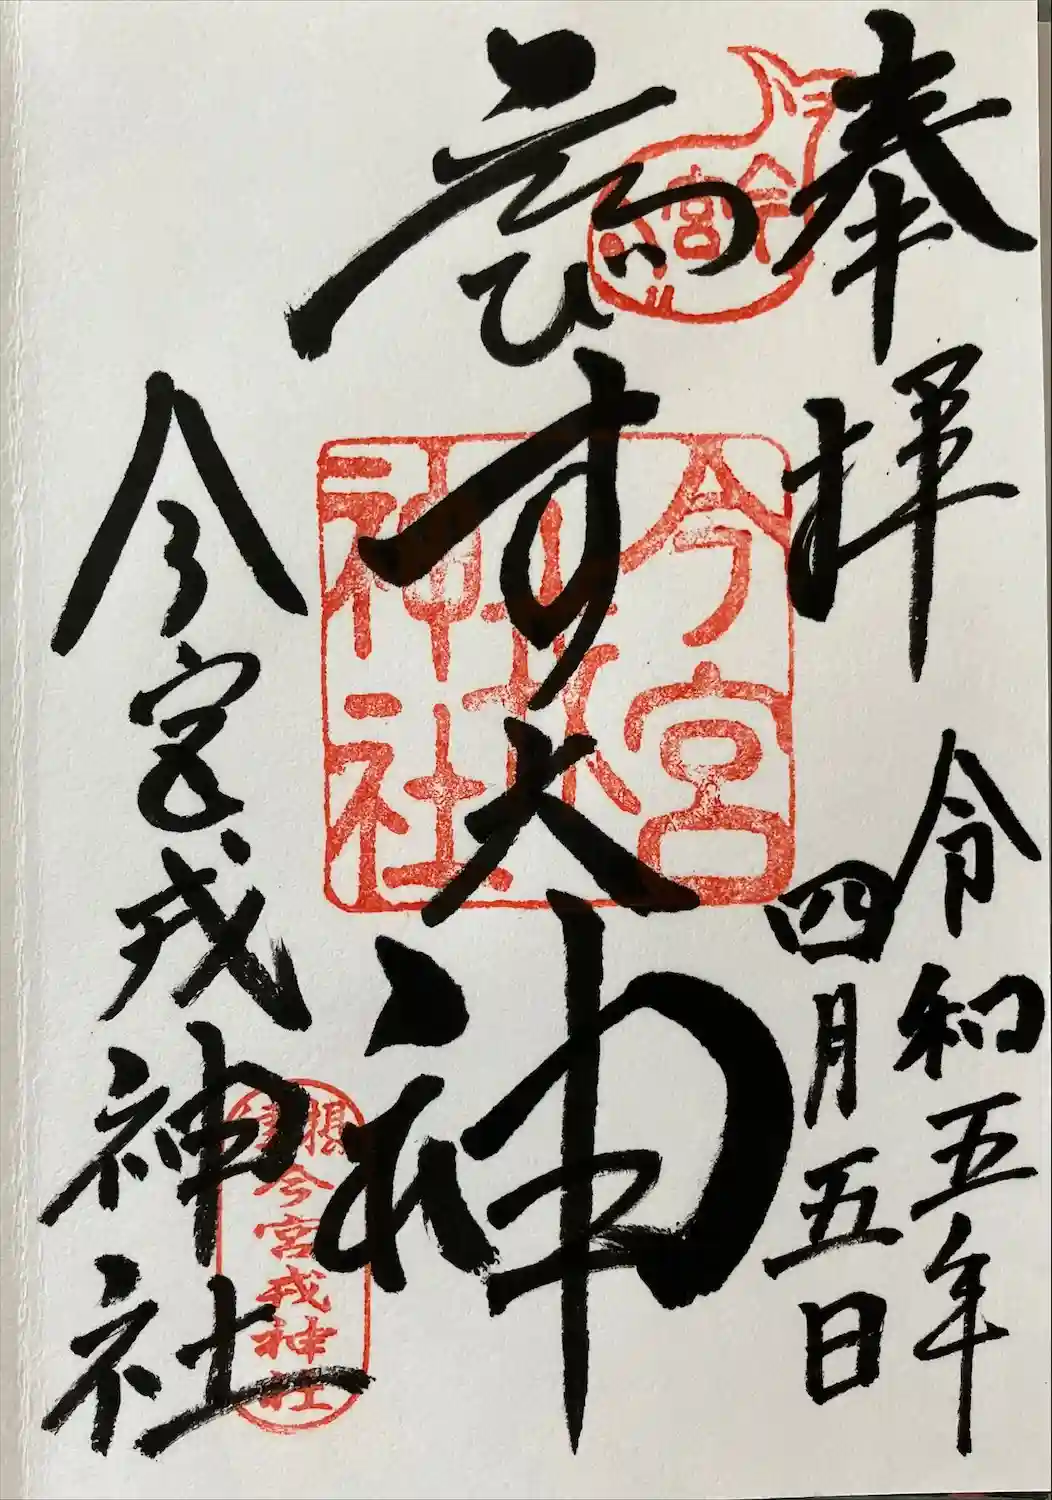 奉拝
令和五年
四月五日
ゑびす大神
今宮戎神社
今宮
今宮
戎
神社
摂津
今宮戎神社